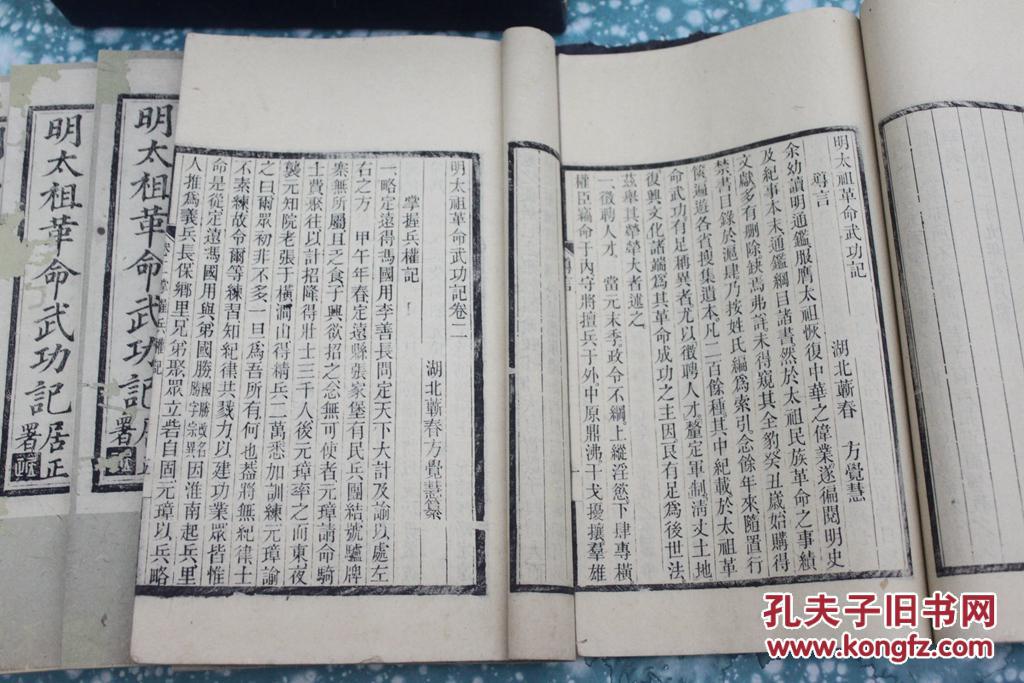 明太祖革命武功記
導言
湖北蘄春 方覺慧
余幼讀明通鑑服膺太祖恢復中華之偉業遂徧閱明史
及紀事本末通鑑綱目諸書然於太祖民族革命之事績
文獻多有刪除缺焉弗詳未得窺其全豹癸丑歲始購得
禁書目錄於滬肆乃按姓氏編爲索引念餘年來隨置行
篋遍遊各省搜集遺本凡二百餘種其中紀載於太祖革
命武功有足稱異者尤以徵聘人才釐定軍制清丈土地
復興文化諸端爲其革命成功之主因良有足爲後世法
茲舉其犖犖大者述之
一徵聘人才 當元末季政令不綱上縱淫慾下肆專橫
權臣竊命于內守將擅兵于外中原鼎沸干戈擾攘羣雄
明太祖革命武功記卷二
湖北蘄春方覺慧纂
掌握兵權記
一略定遠得馮國用李善長問定天下大計及諭以處左
右之方 甲午年春定遠縣張家堡有民兵團結號驢牌
寨無所屬且乏食子興欲招之念無可使者元璋請命騎
士費聚往以計招降得壯士三千人後元璋率之而東夜
襲元知院老張于橫澗山得精兵二萬悉加訓練元璋諭
之曰爾眾初非不多一旦爲吾所有何也蓋將無紀律士
不素練故令爾等練習知紀律共戮力以建功業眾皆惟
命是從定遠馮國用與弟國勝國勝改名勝字宗異因淮南起兵里
人推爲義兵長保鄉里兄弟聚眾立砦自固元璋以兵略
明太祖革命武功記
掌握兵權記
居正
署
明太祖革命武功記
居正
署
孔夫子旧书网
www.kongfz.com